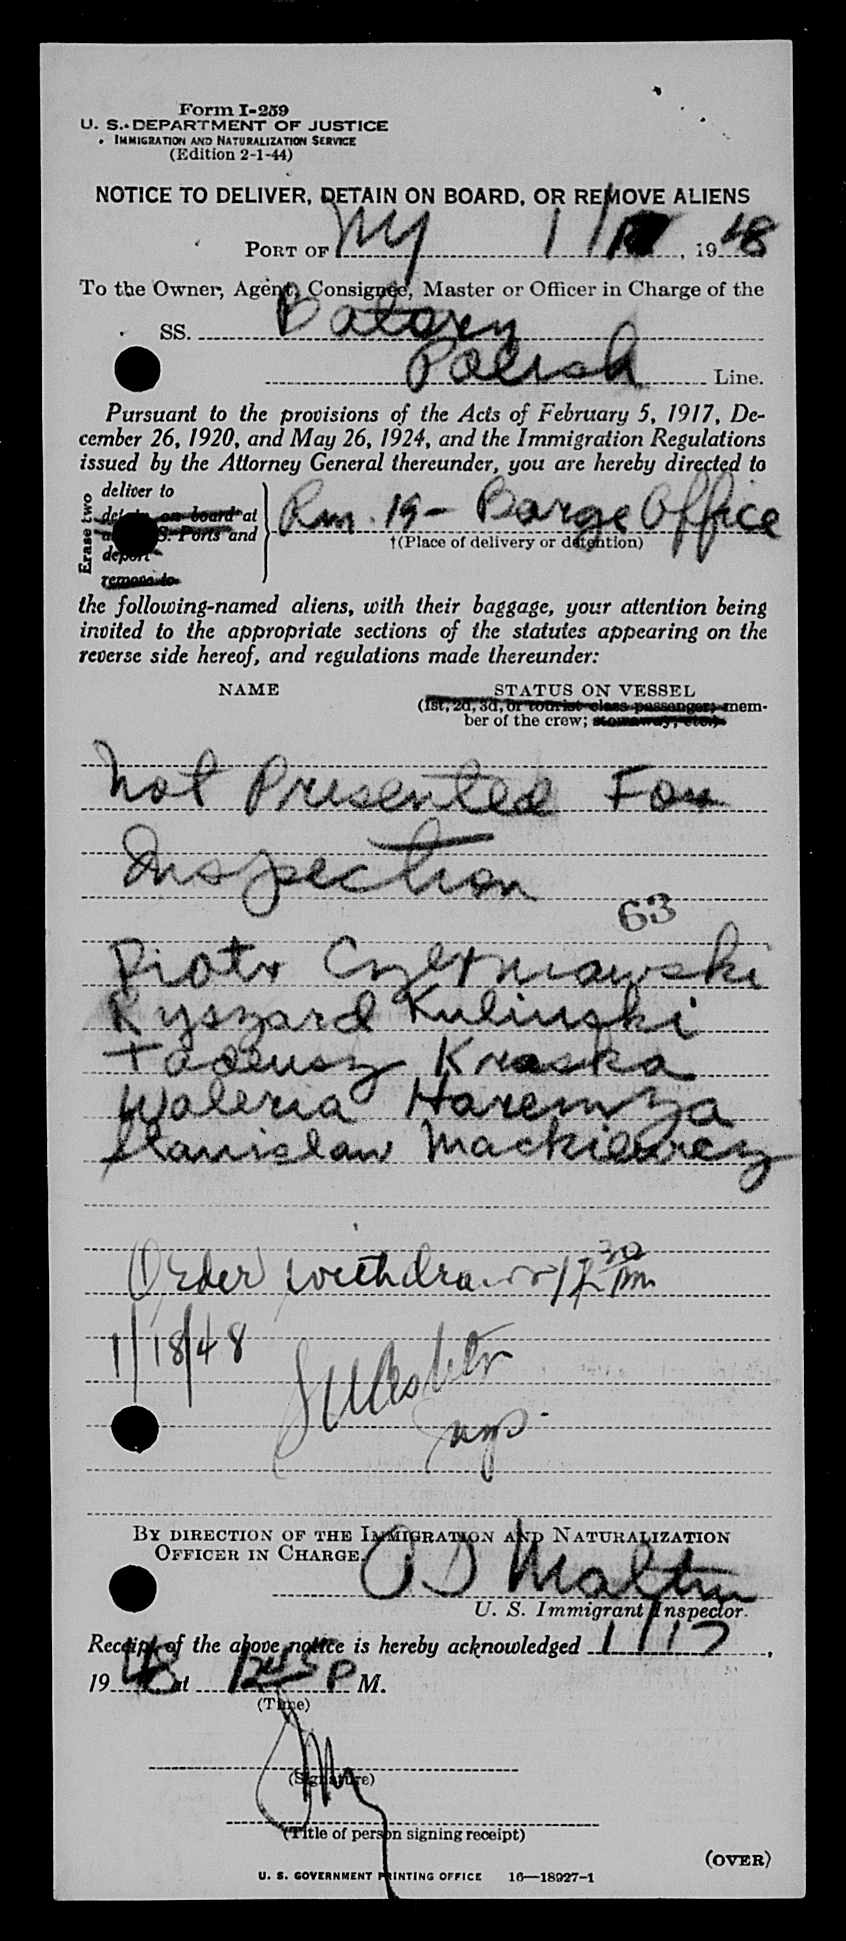 Form I-259
U. S. DEPARTMENT OF JUSTICE
IMMIGRATION AND NATURALIZATION SERVICE
(Edition 2-1-44)
NOTICE TO DELIVER, DETAIN ON BOARD, OR REMOVE ALIENS
PORT OF NY 1/ , 1948
To the Owner, Agent, Consignee, Master or Officer in Charge of the
SS. Batory
Polish Line.
Pursuant to the provisions of the Acts of February 5, 1917, De-
cember 26, 1920, and May 26, 1924, and the Immigration Regulations
issued by the Attorney General thereunder, you are hereby directed to
Erase two
deliver to
detain on board at
S. Ports and
deport
remove to
Rm. 19 - Barge Office
†(Place of delivery or detention)
the following-named aliens, with their baggage, your attention being
invited to the appropriate sections of the statutes appearing on the
reverse side hereof, and regulations made thereunder:
NAME STATUS ON VESSEL
(1st, 2d, 3d, or tourist class passenger; mem-
ber of the crew; stowaway, etc.)
Not Presented For
Inspection
63
Piotr Czerniawski
Ryszard Kulinski
Tadeusz Kraska
Waleria Haremza
Stanislaw Mackiewicz
Order withdrawn 12 30 pm
1/18/48
Insp.
BY DIRECTION OF THE IMMIGRATION AND NATURALIZATION
OFFICER IN CHARGE.
U. S. Immigrant Inspector.
Receipt of the above notice is hereby acknowledged 1/17,
1948 at 1245 P M.
(Time)
(Signature)
(Title of person signing receipt)
(OVER)
U. S. GOVERNMENT PRINTING OFFICE 16—18927-1